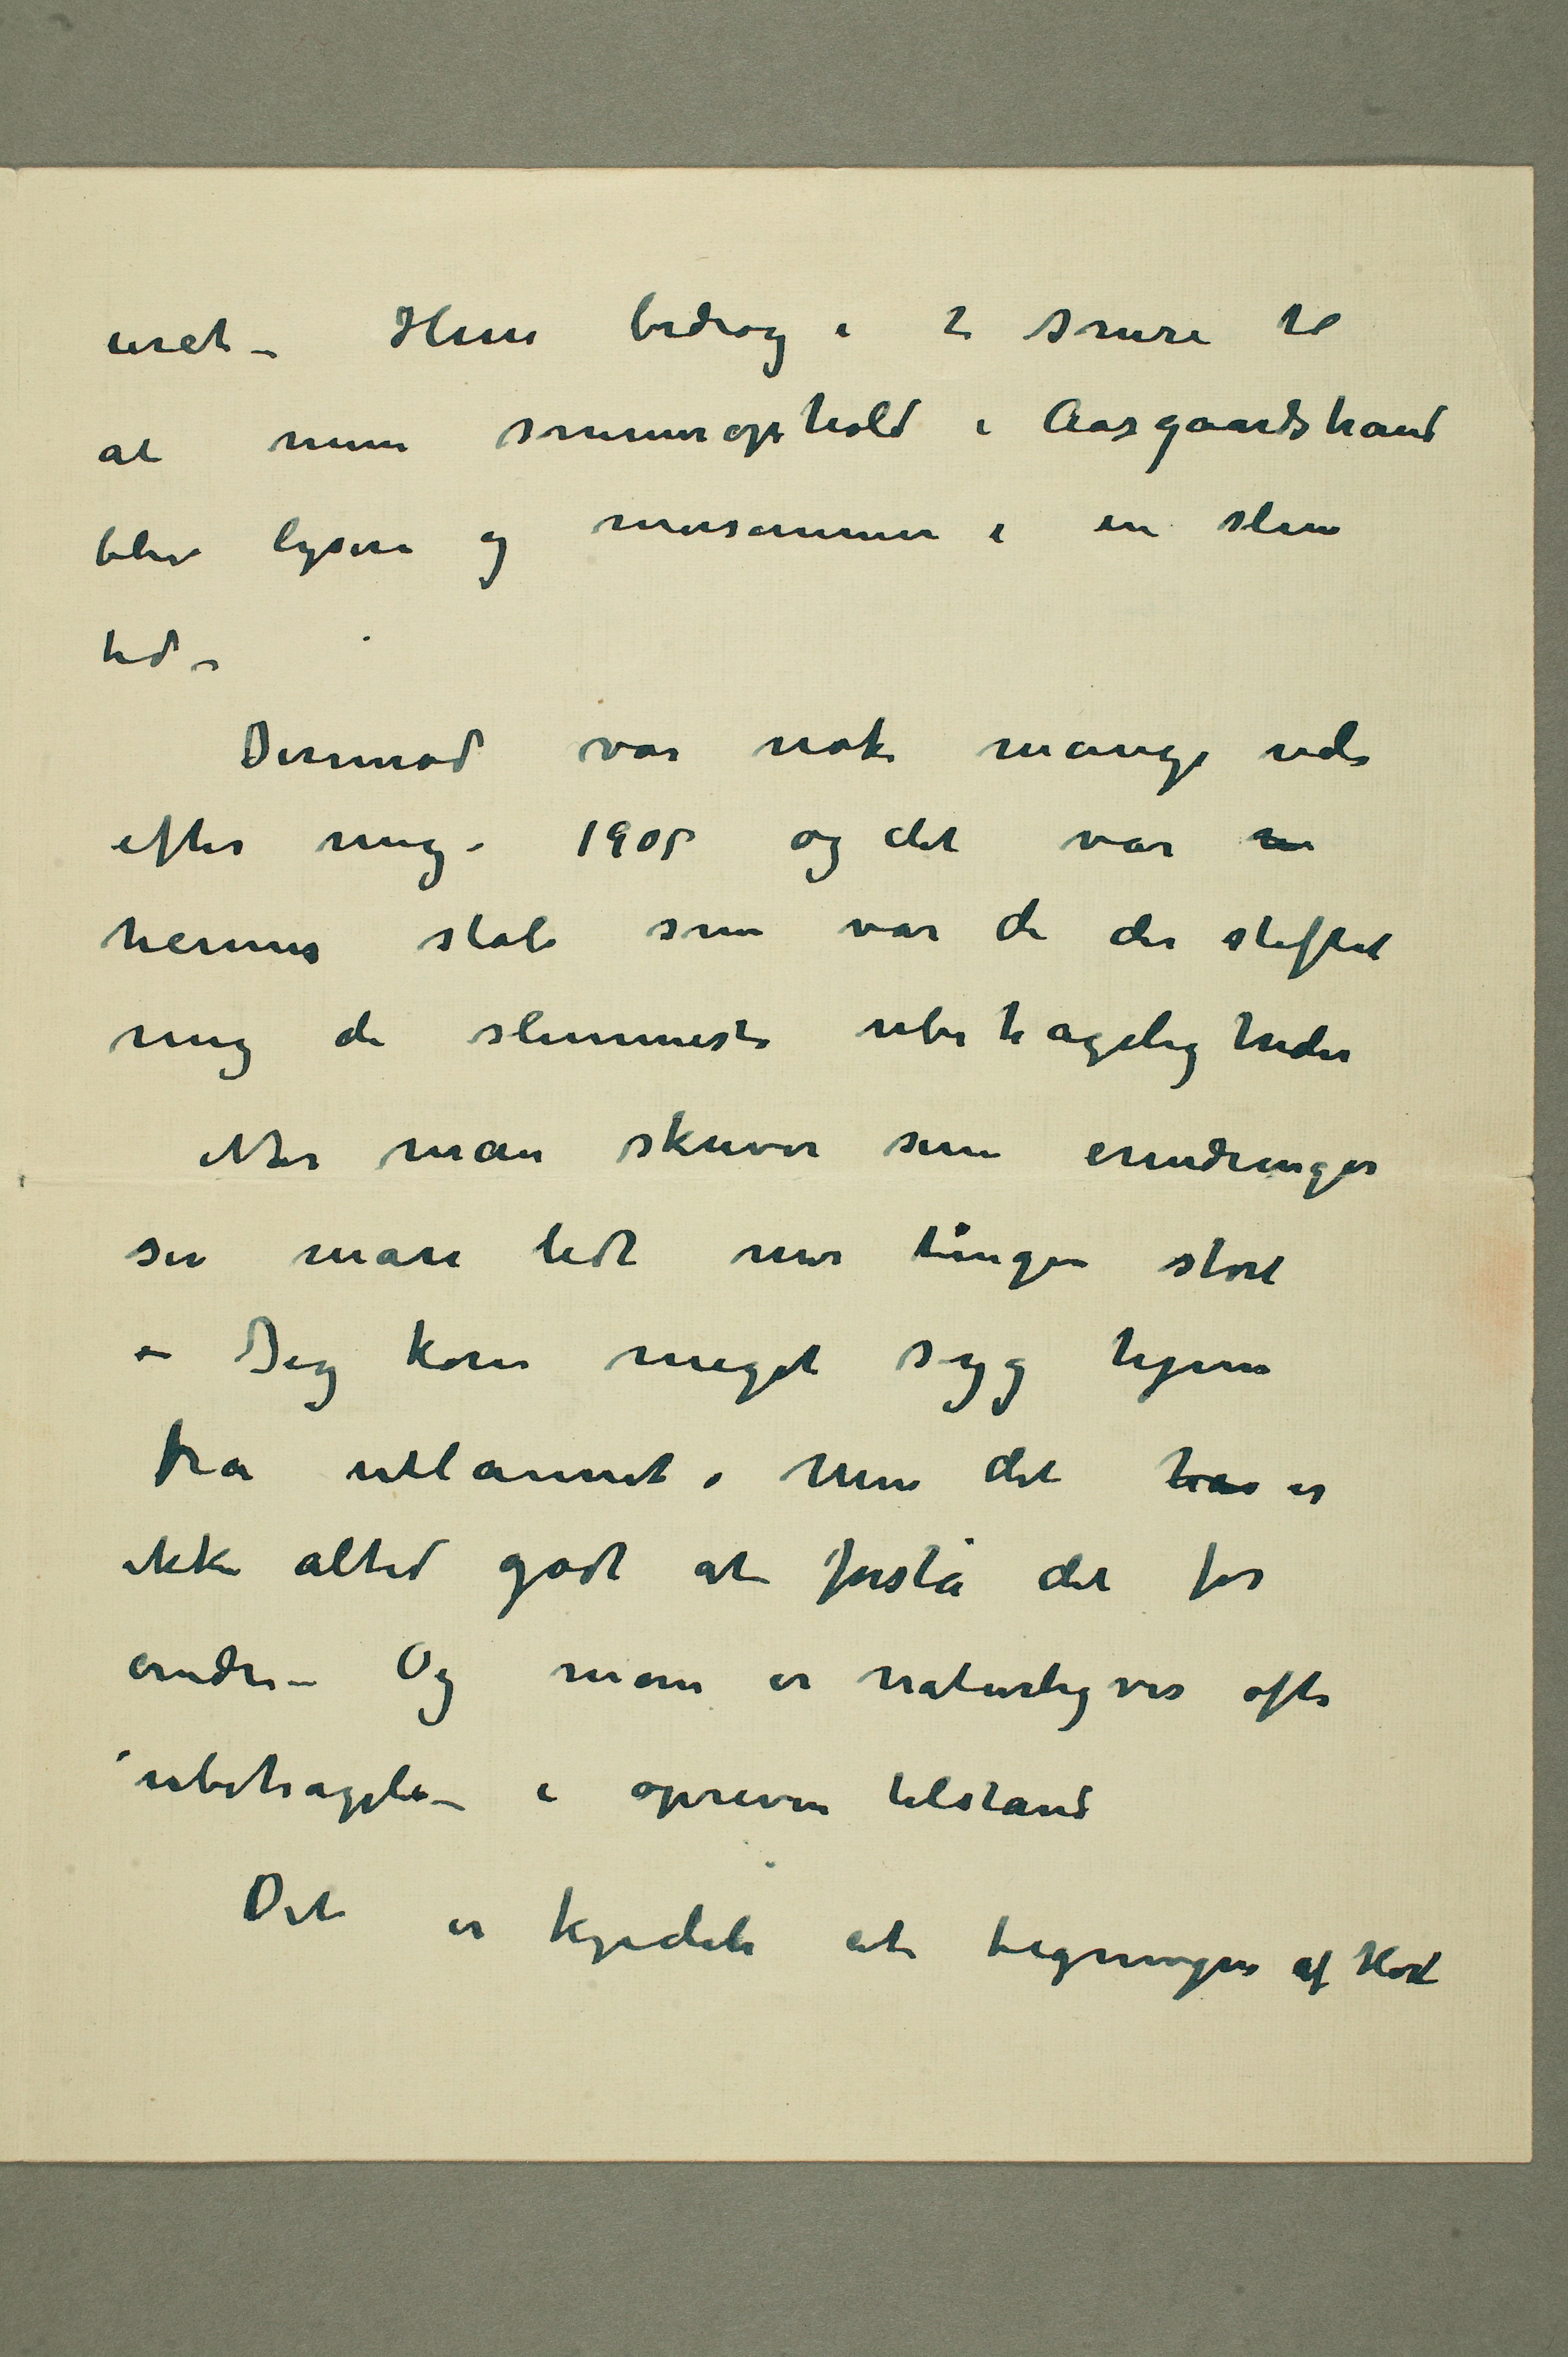 uret – Hun bedrog i 2 somre til
at mine sommerophold i Aasgaardstrand
blev lysere og morsommere i en slem
tid –
Derimod var nok mange ude
efter mig – 1905 og det var
hennes stab som var de der stiftet
mig de slemmeste ubehageligheder
Når man skriver sine erindringer
ser man lidt mer tingen stort
– Jeg kom meget syg hjem
fra utlannet. Men det var er
ikke altid godt at forstå det for
andre – Og man er naturligvis ofte
ubehagelig i opreven tilstand
Det er kjedeligt at tegningen af